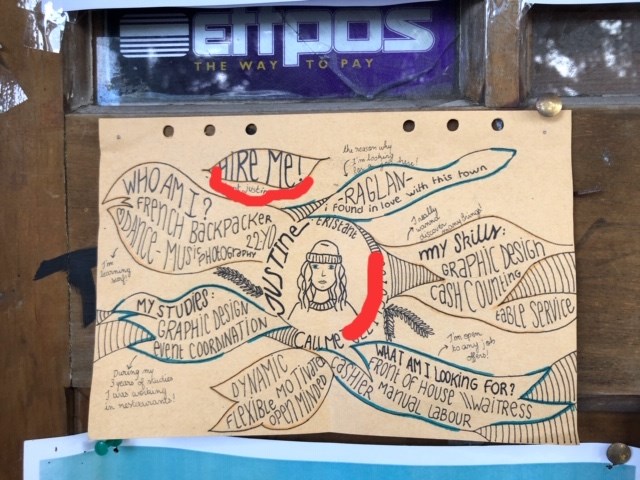 eftpos
THE WAY TO PAY
HIRE ME!
the reason why
I'm looking
-RAGLAN-
I found in love with this town
WHO AM I?
FRENCH BACKPACKER
22 YO
DANCE - MUSIC
PHOTOGRAPHY
I'm
learning surf!
JUSTINE
CALL ME
I really
wanna
discover
MY SKILLS:
GRAPHIC DESIGN
CASH COUNTING
table SERVICE
MY STUDIES:
GRAPHIC DESIGN
EVENT COORDINATION
During my
3 years of studies
I was working
in restaurants!
DYNAMIC
MOTIVATED
FLEXIBLE
OPEN MINDED
I'm open
to any job
offers!
WHAT AM I LOOKING FOR?
FRONT OF HOUSE \\ WAITRESS
CASHIER
MANUAL LABOUR